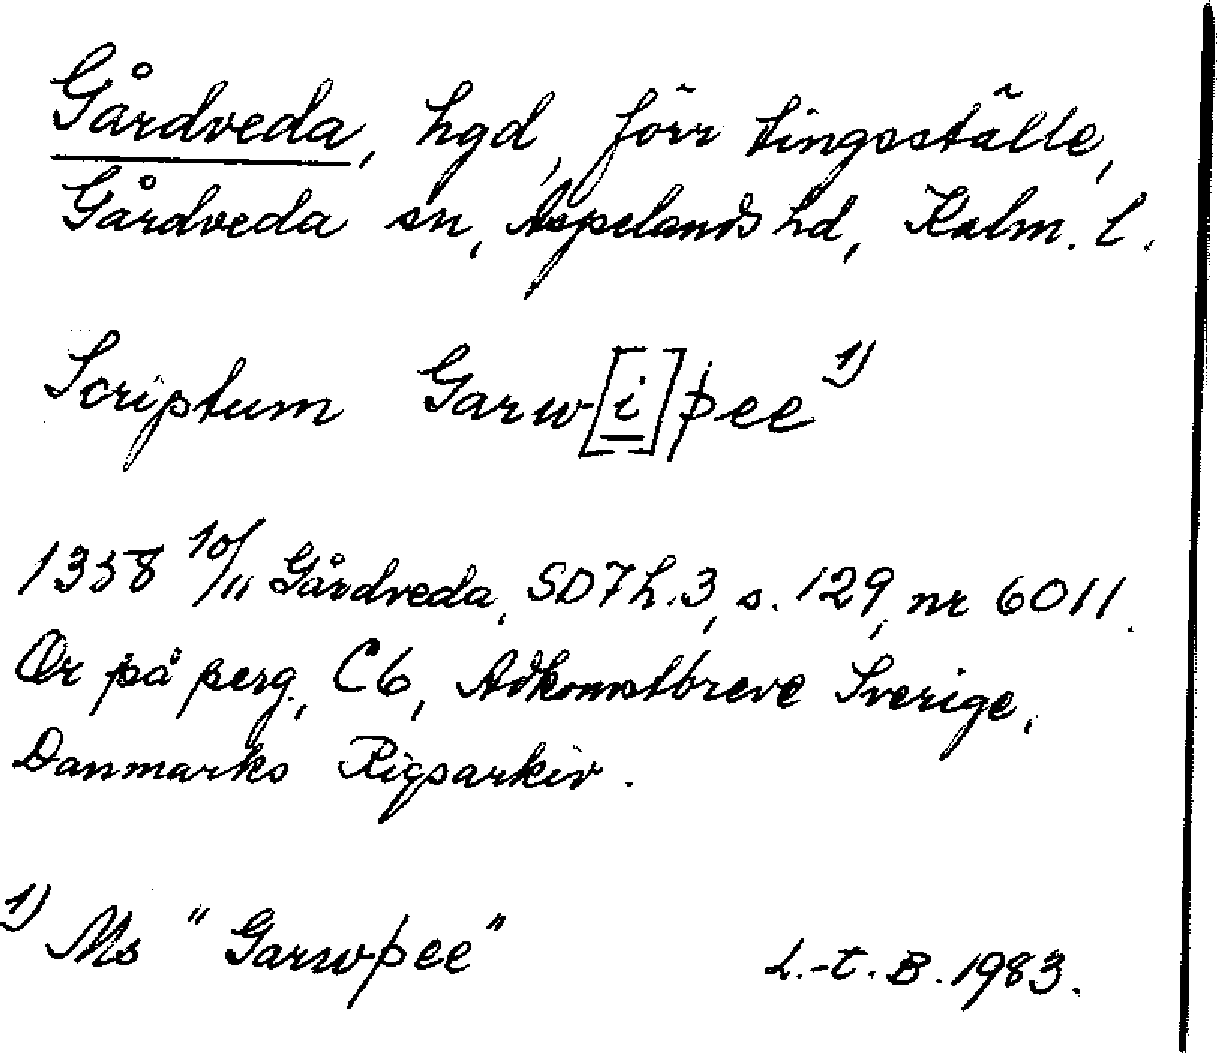 Gårdveda, hgd, förr tingsställe,
Gårdveda sn, Aspelands hd, Kalm. l.
Scriptum Garw[i]þee 1)
1358 10/11 Gårdveda, SD7 h.3, s. 129, nr 6011.
Or på perg., C6, Adkomstbreve Sverige,
Danmarks Rigsarkiv.
1) Ms "Garwþee"
L.-t. B. 1983.